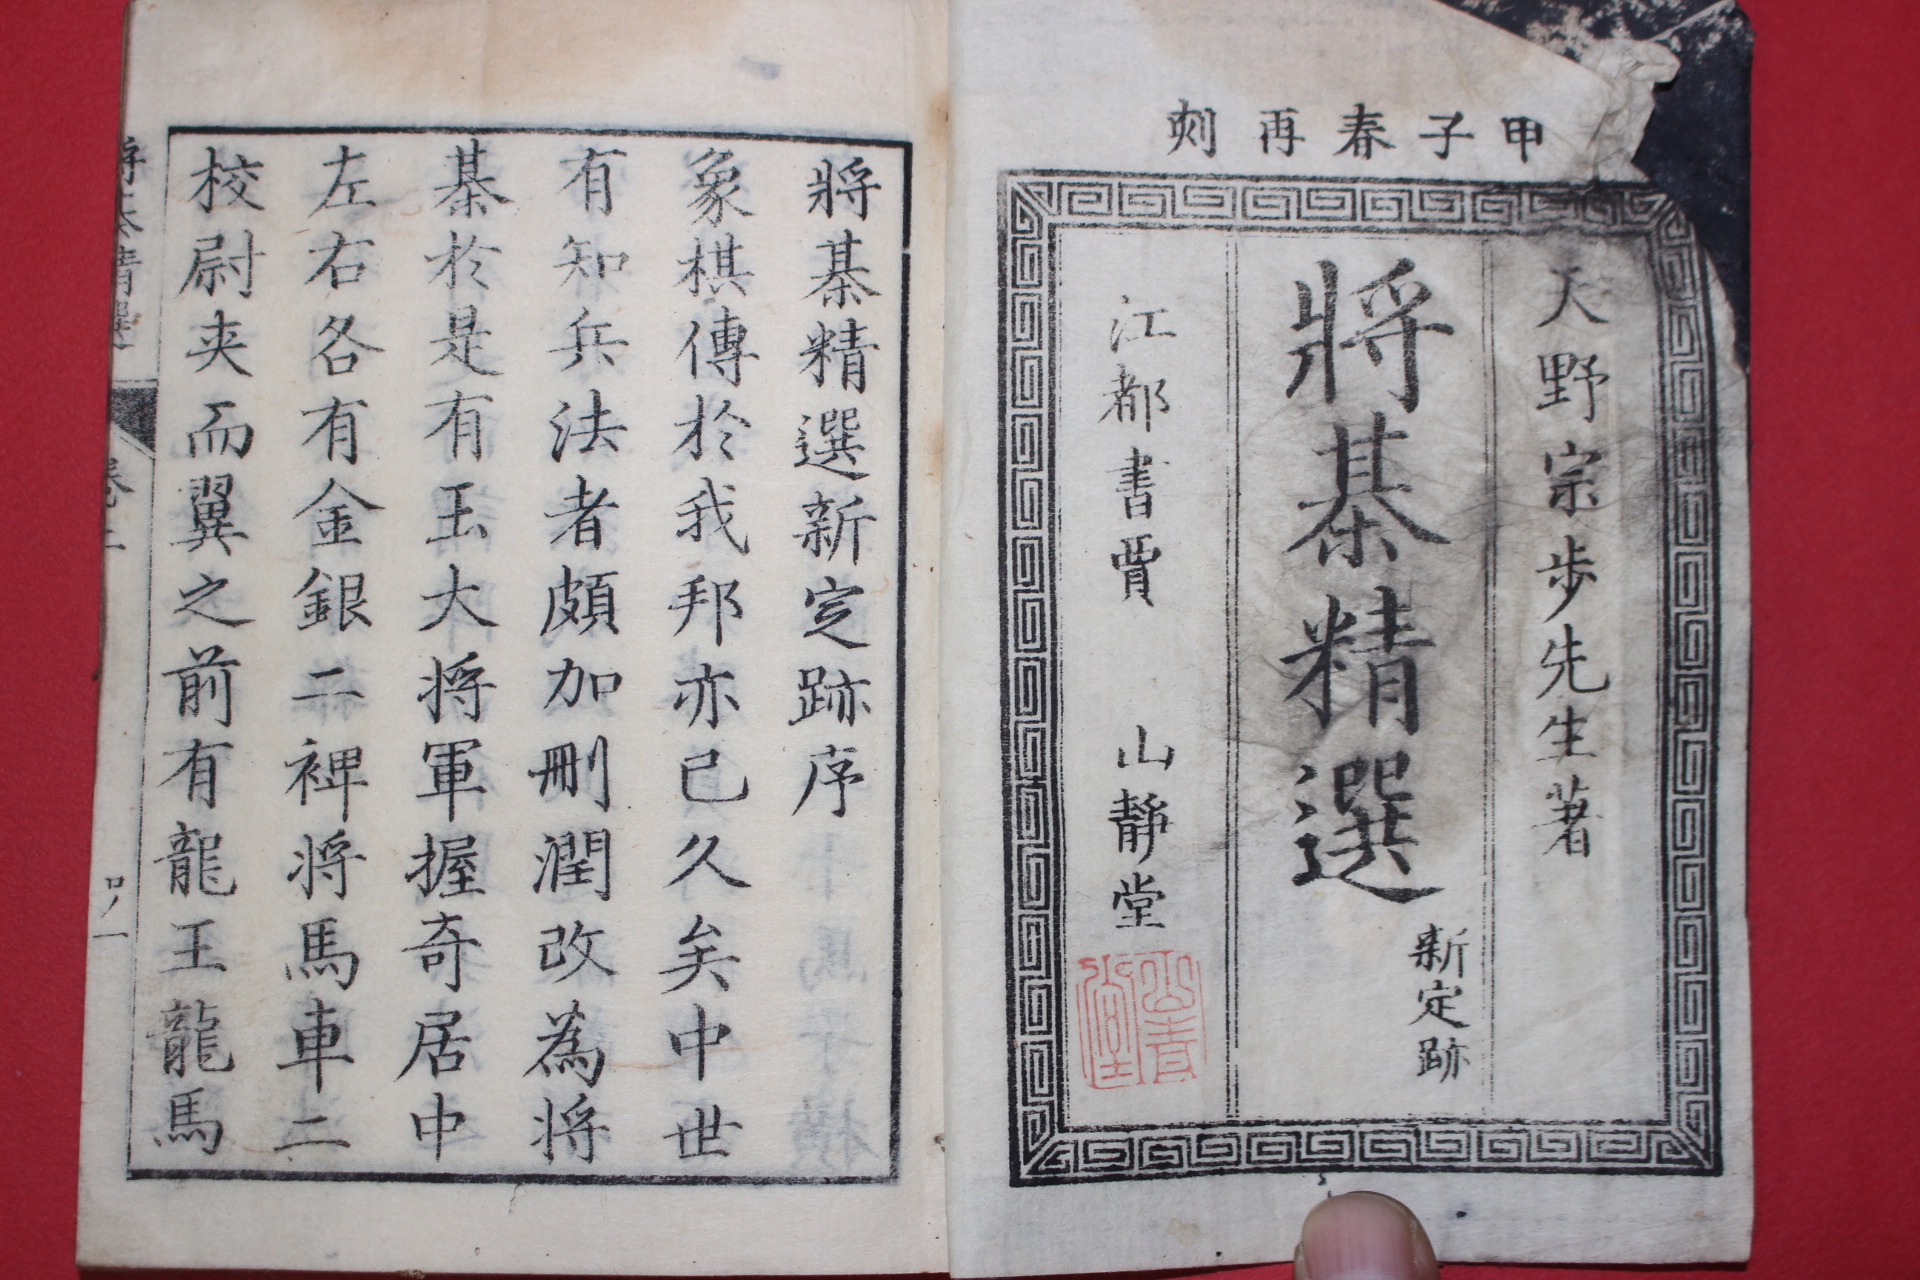 甲子春再刻
天野宗步先生著
將棊精選
新定跡
江都書賈 山靜堂
將棊精選新定跡序
象棋傳於我邦亦已久矣中世
有知兵法者頗加刪潤改為将
棊於是有玉大将軍握奇居中
左右各有金銀二裨将馬車二
校尉夾而翼之前有龍王龍馬